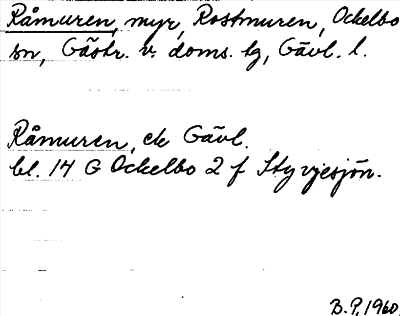 Råmuren, myr, Rostmuren, Ockelbo
sn, Gästr. v. doms. lg, Gävl. l.
Råmuren, ek Gävl.
bl. 14 G Ockelbo 2 f Styvjesjön.
B.P. 1960.